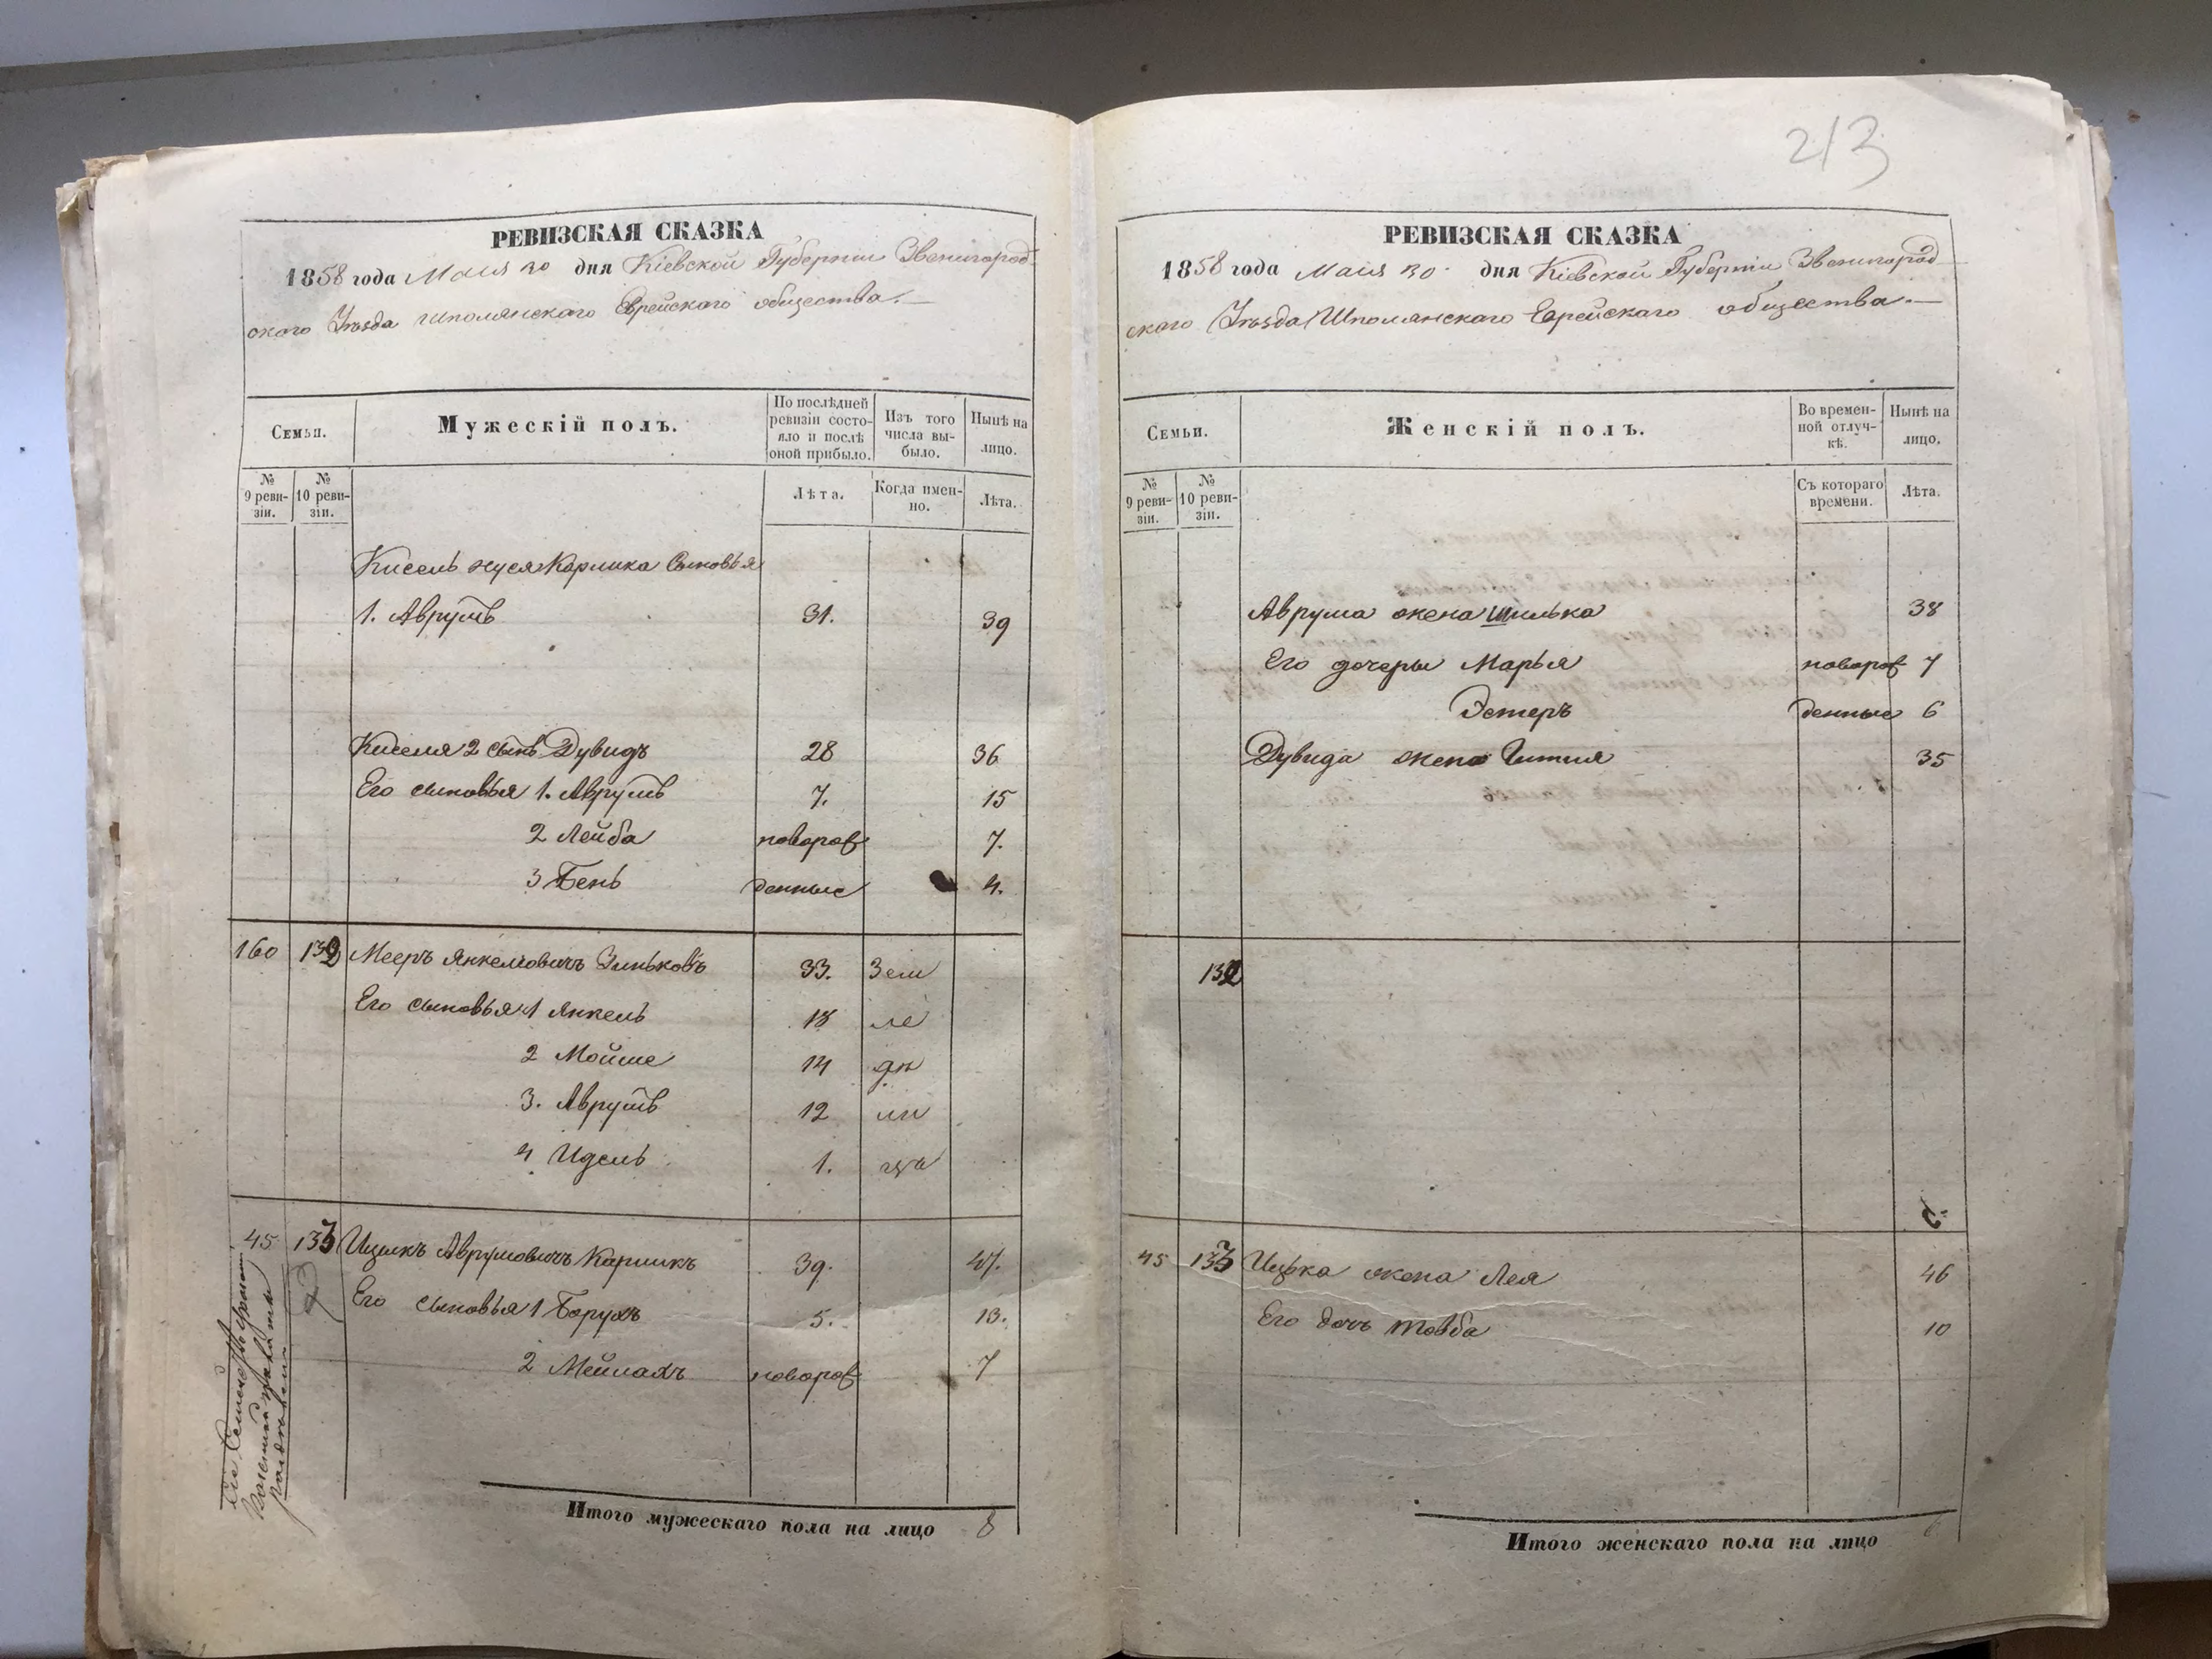 РЕВИЗСКАЯ СКАЗКА
1858 года Маия 30 дня Кіевской Губерніи Звенигород-
ского Уѣзда Шполянскаго Еврейскаго общества.
Семьи.
Мужескій полъ.
По послѣдней ревизіи состо-яло и послѣ оной прибыло.
Изъ того числа вы-было.
Нынѣ на лицо.
№ 9 реви-зіи.
№ 10 реви-зіи.
Лѣта.
Когда имен-но.
Лѣта.
Кисель Карлика Сыновья
1. Аврумъ 31. 39
Киселя 2 сынъ Дувидъ 28 36
Его сыновья 1. Аврумъ 7. 15
2 Лейба новорож 7.
3 Бень денные 4.
160 132 Мееръ Янкелювичъ Зиньковъ 33. Зем
Его сыновья 1 Янкель 18 ле
2 Мойше 14 дѣ
3. Аврумъ 12 ль
4 Идель 1. цы
45 133 Ицикъ Аврумовичъ Карликъ 39. 47.
Его сыновья 1 Борухъ 5. 13.
2 Мейлахъ новорож 7
Итого мужескаго пола на лицо 8
213
РЕВИЗСКАЯ СКАЗКА
1858 года Маия 30 дня Кіевской Губерніи Звенигород-
ского Уѣзда Шполянскаго Еврейскаго общества.
Семьи.
Женскій полъ.
Во времен-ной отлуч-кѣ.
Нынѣ на лицо.
№ 9 реви-зіи.
№ 10 реви-зіи.
Съ котораго времени.
Лѣта.
Аврума жена Шилька 38
Его дочеры Марья новорож 7
Эстеръ денные 6
Дувида жена Гитля 35
132
45 133 Ицька жена Лея 46
Его дочь Товба 10
Итого женскаго пола на лицо 6